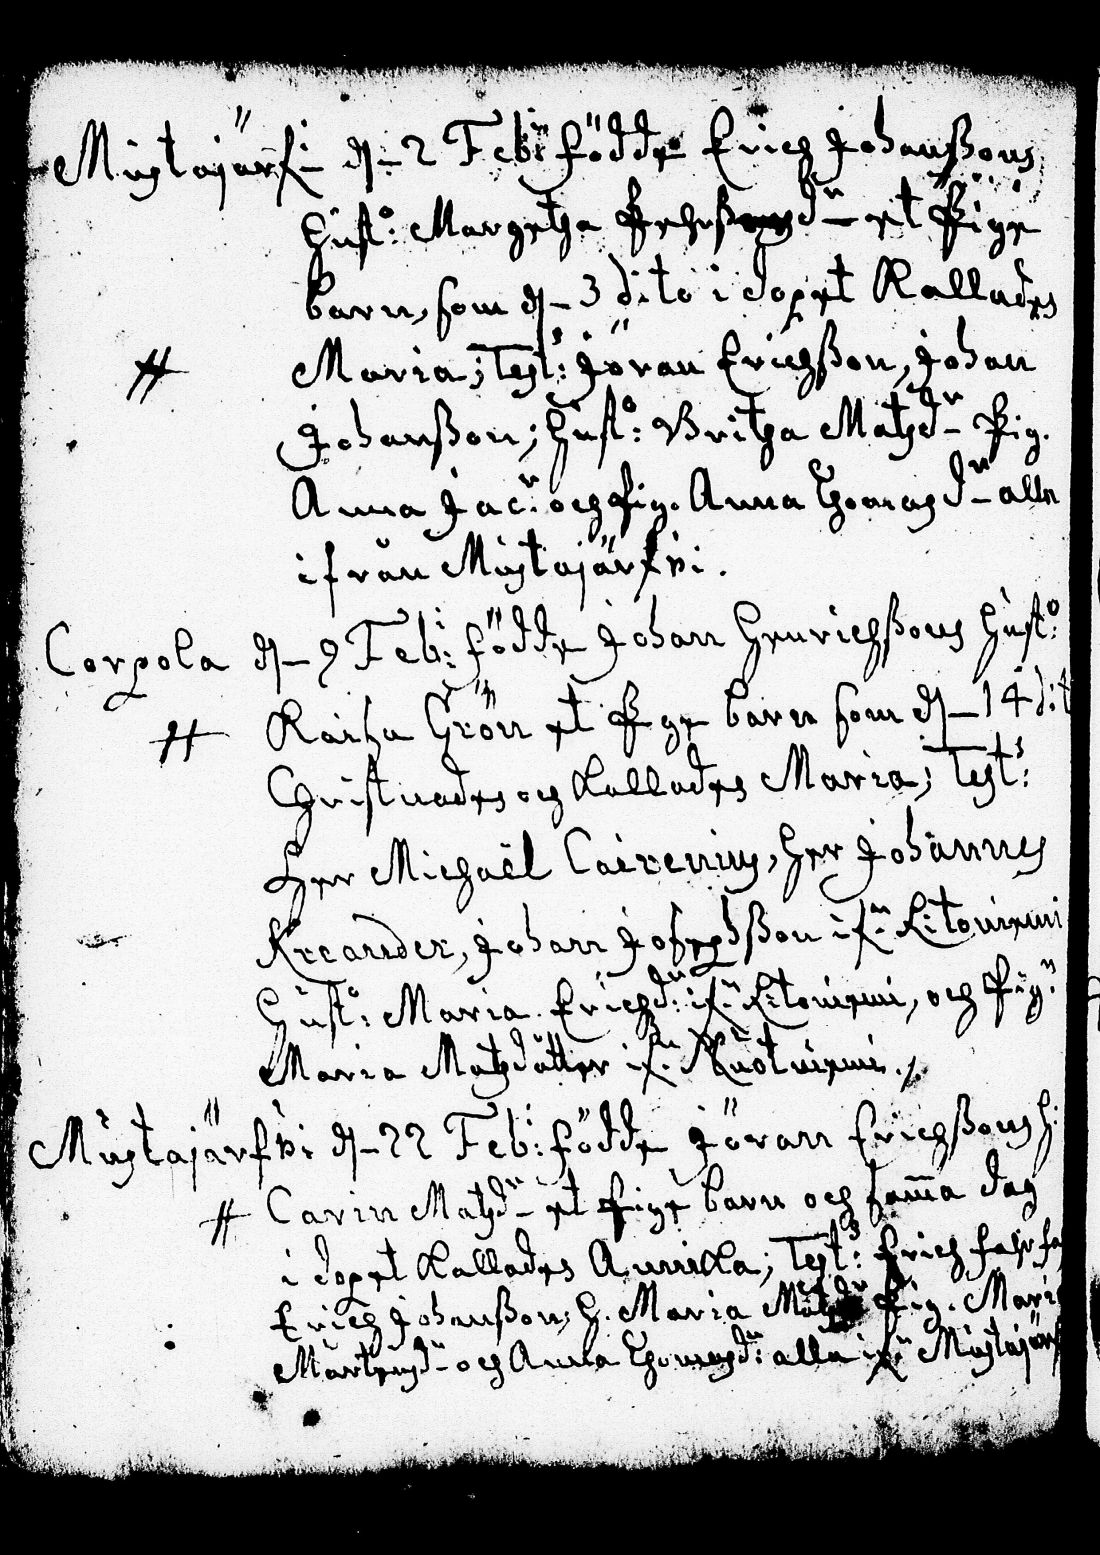 Mustajärfi d– 2 Feb: födde Erich Johanßons
hust: Margetha Pehrß d– et Pige
barn, som d– 3 dito i dopet Kallades
Maria; Test: Jöran Erichßon, Johan
Johanßon; hust: Britha Matzd– Pig.
Anna Jac: och Pig. Anna Thomasd– alla
ifrån Mustajärfvi.
Corpola d– 9 Feb: födde Johan Henrichßons hust:
Kaisa Grön et Pige barn som d– 14 dit
Christnades och Kallades Maria; Test:
Herr Michaël Cairenius, Herr Johannes
Kreander, Johan Josephßon if: Kitoniemi
hust: Maria Erichd: if: Kitoniemi, och Pig:
Maria Matzdåtter if. Kuotniemi.
Mustajärfvi d– 22 Feb: födde Jöran Erichßons h:
Carin Matzd– et Pige barn och samma dag
i dopet Kallades Annicka; Test: Erich
Erich Johanßon, H. Maria Matzd Pig. Mari
Mårtensd– och Anna Thomasd: alla if: Mustajärf